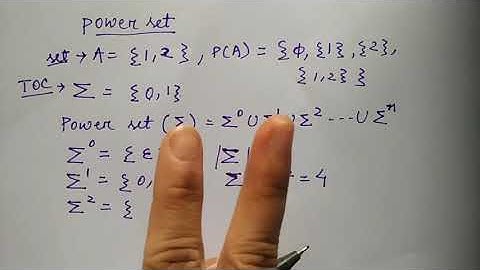 Power set
set → A = {1, 2}, P(A) = {ϕ, {1}, {2},
{1, 2}}
TOC → Σ = {0, 1}
Power set (Σ) = Σ⁰ ∪ Σ¹ ∪ Σ² ... ∪ Σⁿ
Σ⁰ = {ε |Σ
Σ¹ = {0, Σ = 4
Σ² = {